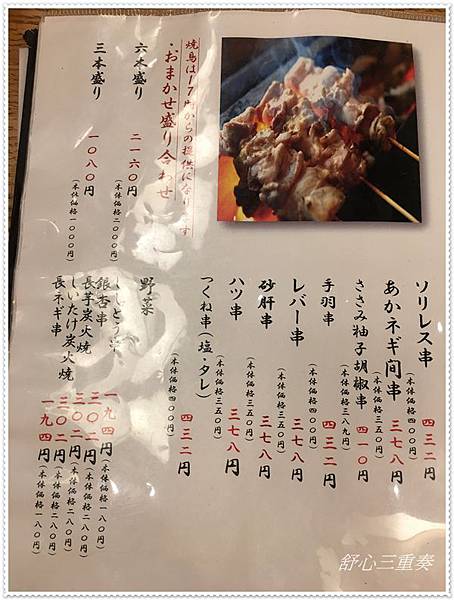 ソリレス串 (本体価格四〇〇円) 四三二円
あかネギ間串 (本体価格三五〇円) 三七八円
ささみ柚子胡椒串 (本体価格三八〇円) 四一〇円
手羽串 (本体価格四〇〇円) 四三二円
レバー串 (本体価格三五〇円) 三七八円
砂肝串 (本体価格三五〇円) 三七八円
ハツ串 (本体価格三五〇円) 三七八円
つくね串(塩・タレ) (本体価格四〇〇円) 四三二円
焼鳥は17時からの提供になります
・おまかせ盛り合わせ
六本盛り 二一六〇円 (本体価格二〇〇〇円)
三本盛り 一〇八〇円 (本体価格一〇〇〇円)
野菜
ししとう串 一九四円 (本体価格一八〇円)
銀杏串 三〇二円 (本体価格二八〇円)
長芋炭火焼 三〇二円 (本体価格二八〇円)
しいたけ炭火焼 三〇二円 (本体価格二八〇円)
長ネギ串 一九四円 (本体価格一八〇円)
舒心三重奏